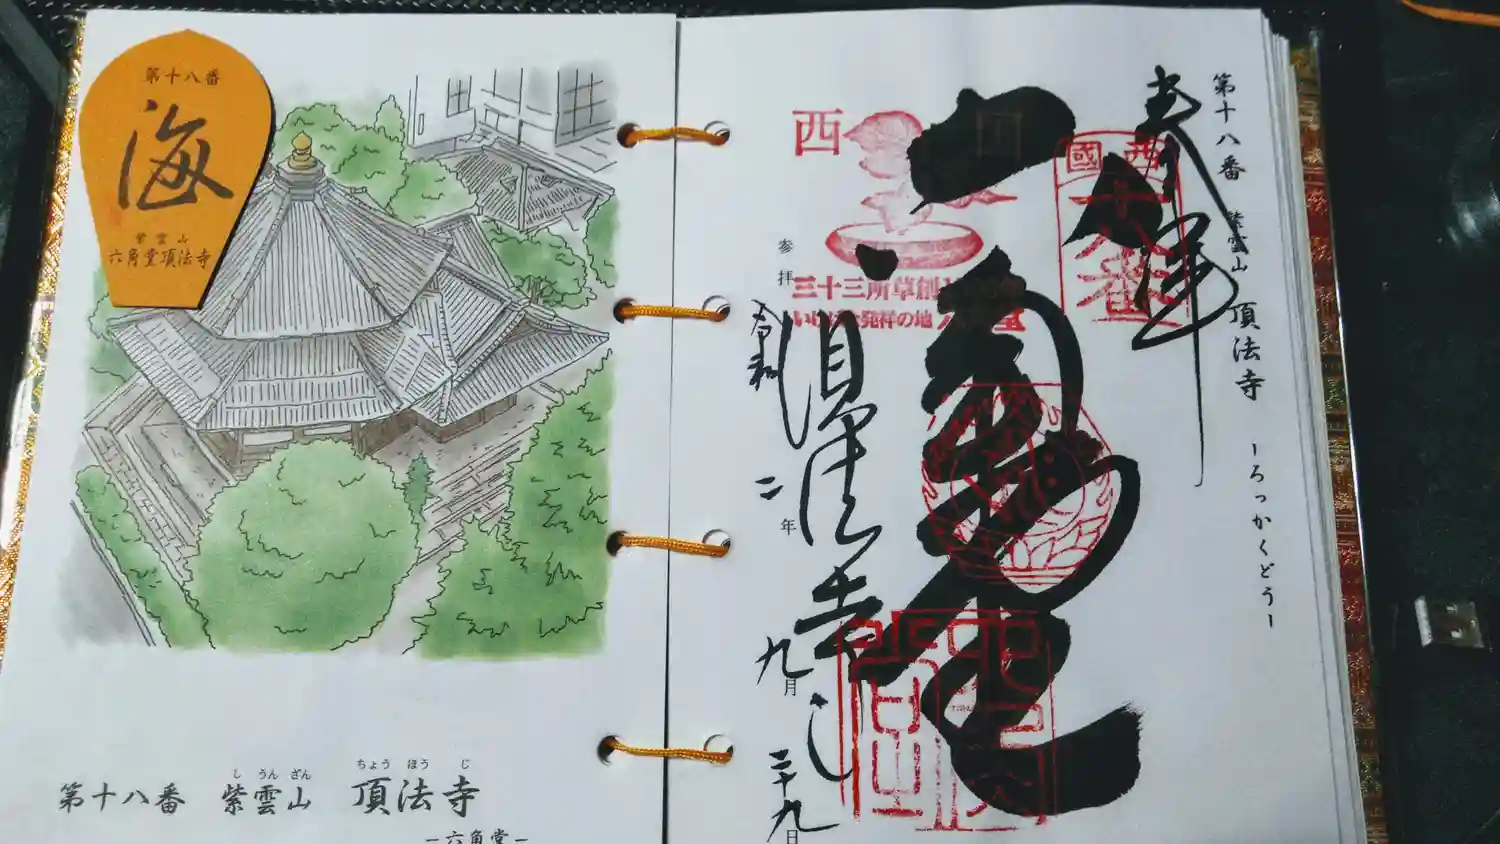 第十八番
海
紫雲山
六角堂頂法寺
し うん ざん ちょう ほう じ
第十八番 紫雲山 頂法寺
―六角堂―
第十八番 紫雲山 頂法寺 ―ろっかくどう―
奉拝
西國
十八番
六角堂
西国
三十三所草創
の地
頂法寺
参拝
令和二年九月二十九日